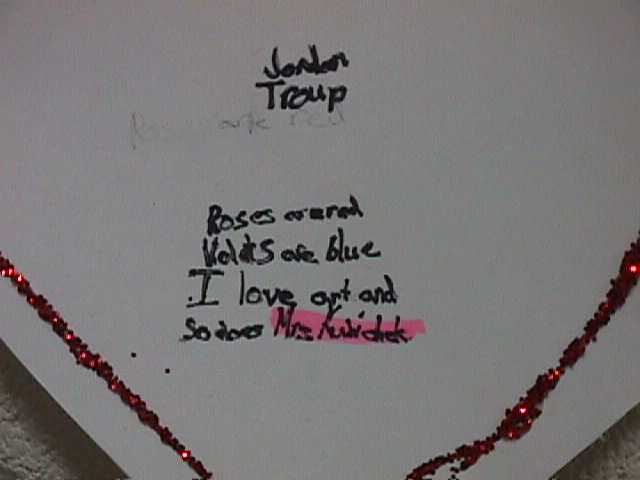 Jordan
Troup
Roses are red
Roses are red
Violets are blue
I love art and
so does Mrs.